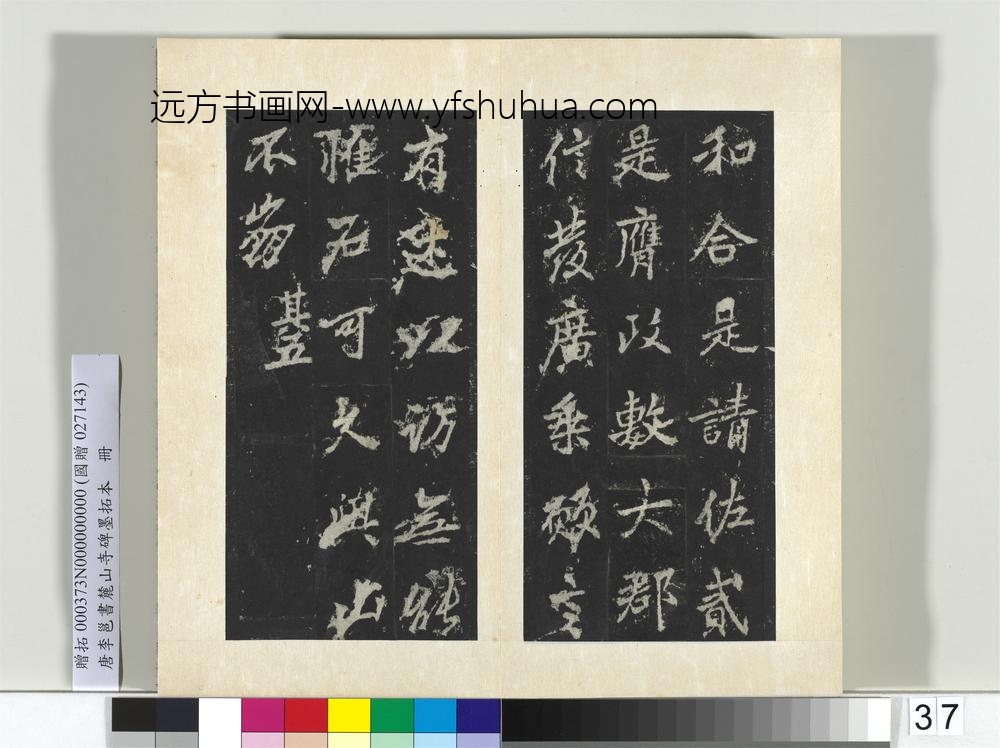 远方书画网-www.yfshuhua.com
和合是請佐貳
是膺政敷大郡
信發廣乘願言
有述以訪無能
惟石可久與山
不崩 其五
贈拓 000373N000000000 (國贈 027143)
唐李邕書麓山寺碑墨拓本 冊
37